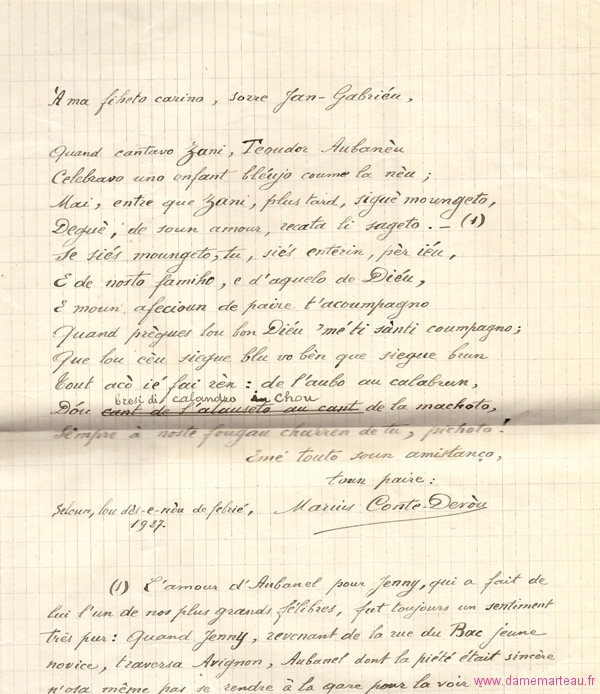 A ma fiheto carino, sorre Jan-Gabriéu,
Quand cantavo Zani, Teoudor Aubanèu
Celebravo uno enfant bléujo coume la nèu ;
Mai, entre que Zani, plus tard, siguè moungeto,
Deguè, de soun amour, recata li sageto. — (1)
Se siés moungeto, tu, siés enterin, pèr iéu,
E de nosto famiho, e d'aquelo de Diéu,
E moun afecioun de paire t'acoumpagno
Quand prègues lou bon Diéu 'mé ti sànti coumpagno ;
Que lou cèu siegue blu vo bèn que siegue brun
Tout acò ié fai rèn : de l'aubo au calabrun,
bresi di calandro au chou
Dóu cant de l'alauseto au cant de la machoto,
Sèmpre à noste fougau charren de tu, pichoto !
Emé touto soun amistanço,
toun paire :
Seloun, lou dès-e-nòu de febrié, Marius Conte-Devòu
1937.
(1) L'amour d'Aubanel pour Jenny, qui a fait de
lui l'un de nos plus grands félibres, fut toujours un sentiment
très pur : Quand Jenny, revenant de la rue du Bac jeune
novice, traversa Avignon, Aubanel dont la piété était sincère
n'osa même pas se rendre à la gare pour la voir
www.damemarteau.fr